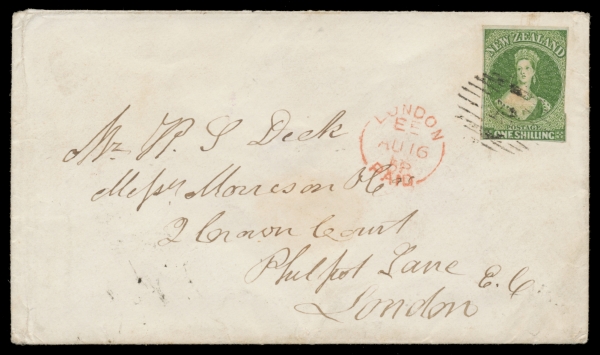 NEW ZEALAND
POSTAGE
ONE SHILLING
LONDON
AU 16
PAID
Mr W. S Dick
Messrs Morrison &
2 Crown Court
Philpot Lane E. C.
London